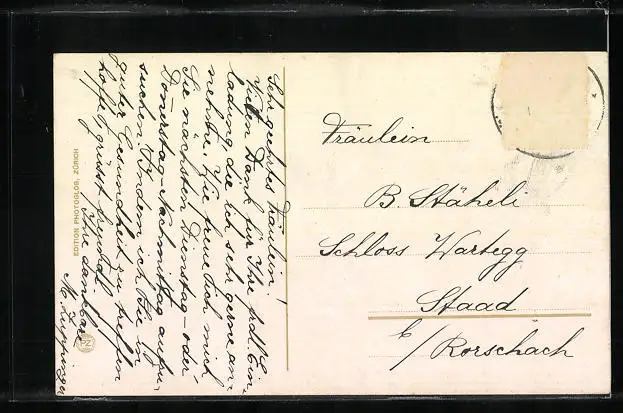 Sehr geehrtes Fräulein!
Vielen Dank für Ihre frdl. Ein-
ladung, die ich sehr gerne an-
nehme. Wie freue ich mich
Sie nächsten Dienstag- oder
Donnerstag-Nachmittag aufzu-
suchen. Indem ich Sie in
guter Gesundheit zu treffen
hoffe, grüsst freundl.
Ihre dankbare
M. Zuppinger
EDITION PHOTOGLOB, ZÜRICH
PZ
Fräulein
B. Stäheli
Schloss Wartegg
Staad
b/Rorschach